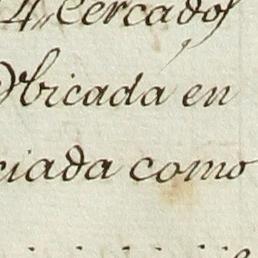 4, Cercados
Vbicada en
ciada como